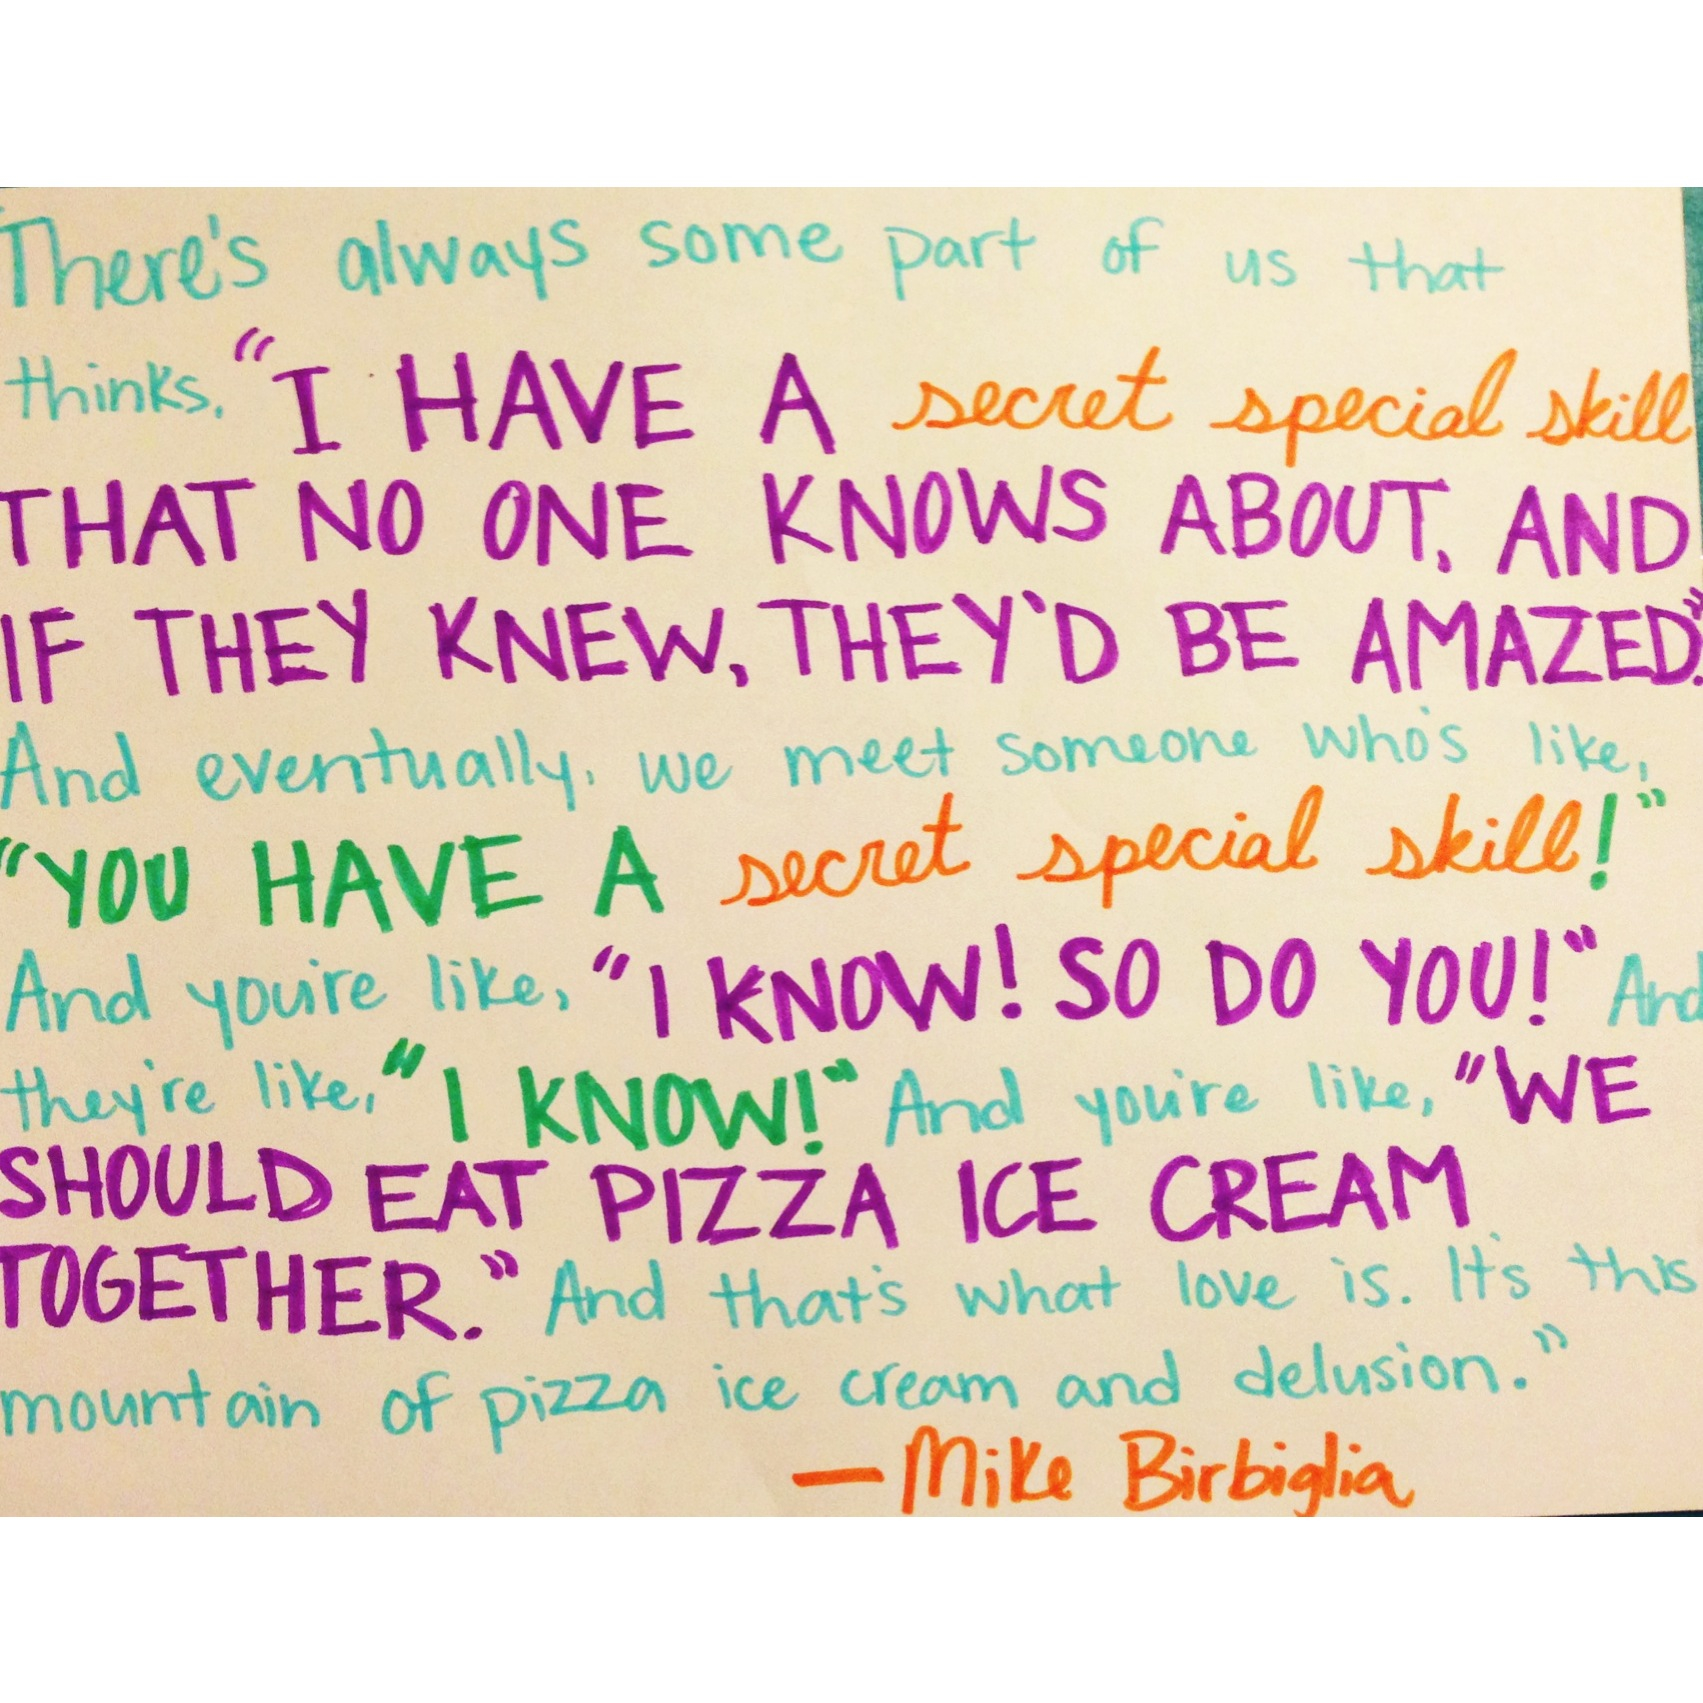 There's always some part of us that
thinks, "I HAVE A secret special skill
THAT NO ONE KNOWS ABOUT, AND
IF THEY KNEW, THEY'D BE AMAZED."
And eventually, we meet someone who's like,
"YOU HAVE A secret special skill!"
And you're like, "I KNOW! SO DO YOU!" And
they're like, "I KNOW!" And you're like, "WE
SHOULD EAT PIZZA ICE CREAM
TOGETHER." And that's what love is. It's this
mountain of pizza ice cream and delusion."
— Mike Birbiglia